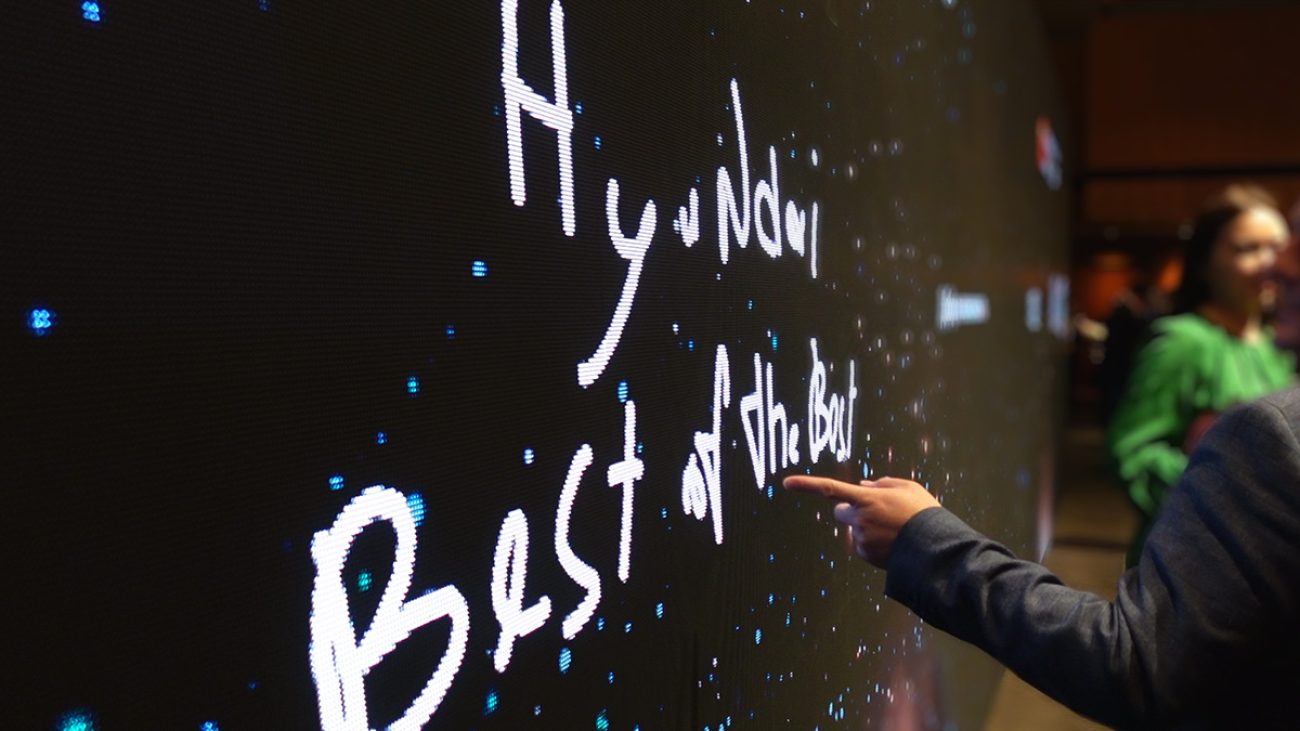 Hyundai
Best of the Best